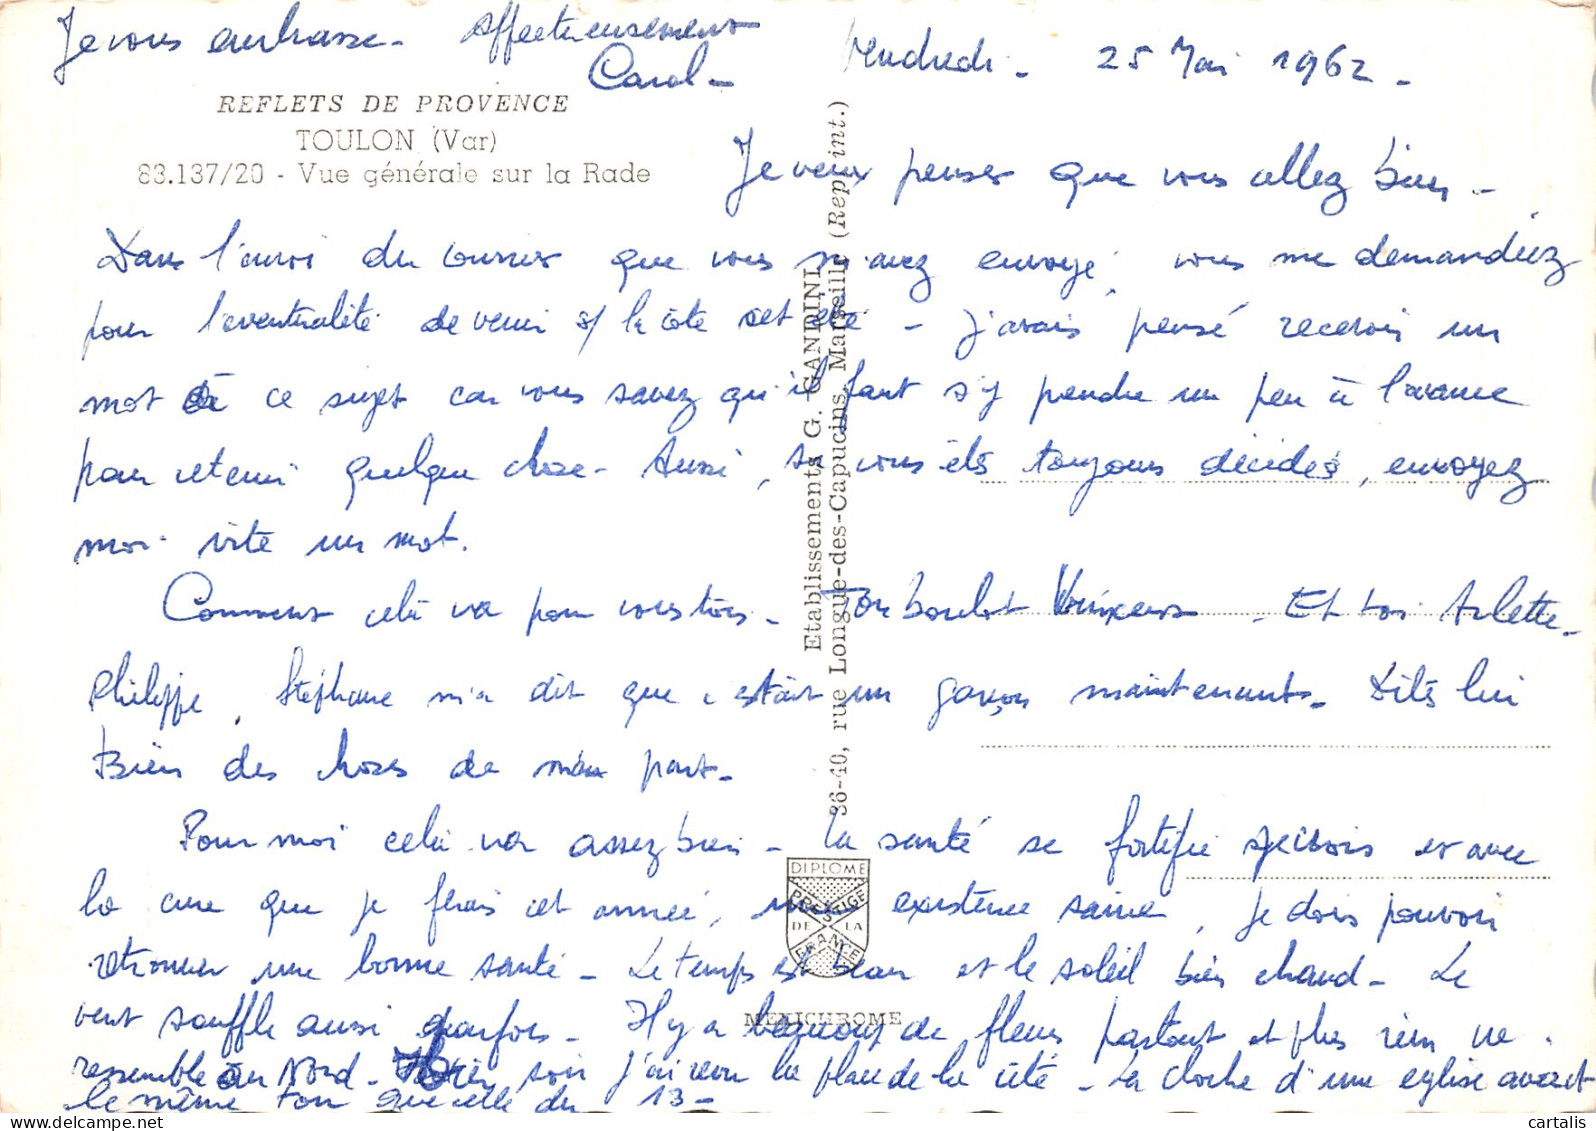 Je vous embrasse - affectueusement
Carol -
Vendredi - 25 Mai 1962 -
REFLETS DE PROVENCE
TOULON (Var)
83.137/20 - Vue générale sur la Rade
Je veux penser que vous allez bien -
Dans l'envoi du courrier que vous m'avez envoyé, vous me demandiez
pour l'éventualité de venir s/ la côte cet été - J'avais pensé recevoir un
mot à ce sujet car vous savez qu'il faut s'y prendre un peu à l'avance
pour retenir quelque chose - Aussi, si vous êts toujours décidés, envoyez
moi vite un mot.
Comment celà va pour vous tous - Ton boulot - Et toi Arlette -
Philippe, Stéphane m'a dit que c'était un garçon maintenant - Dites lui
Bien des choses de ma part -
Pour moi celà va assez bien - La santé se fortifie et avec
la cure que je ferais cet année, une existence saine, je dois pouvoir
retrouver une bonne santé - Le temps est beau et le soleil bien chaud - Le
vent souffle aussi parfois - Il y a beaucoup de fleurs partout et plus rien ne
ressemble au Nord - Hier soir j'ai revu la place de la cité - La cloche d'une église avait
le même ton que celle du 13 -
Etablissements G. GANDINI
36-40, rue Longue-des-Capucins, Marseille (Rep. int.)
DIPLOME
PRESTIGE
DE LA
FRANCE
MEXICHROME
cartalis
delcampe.net